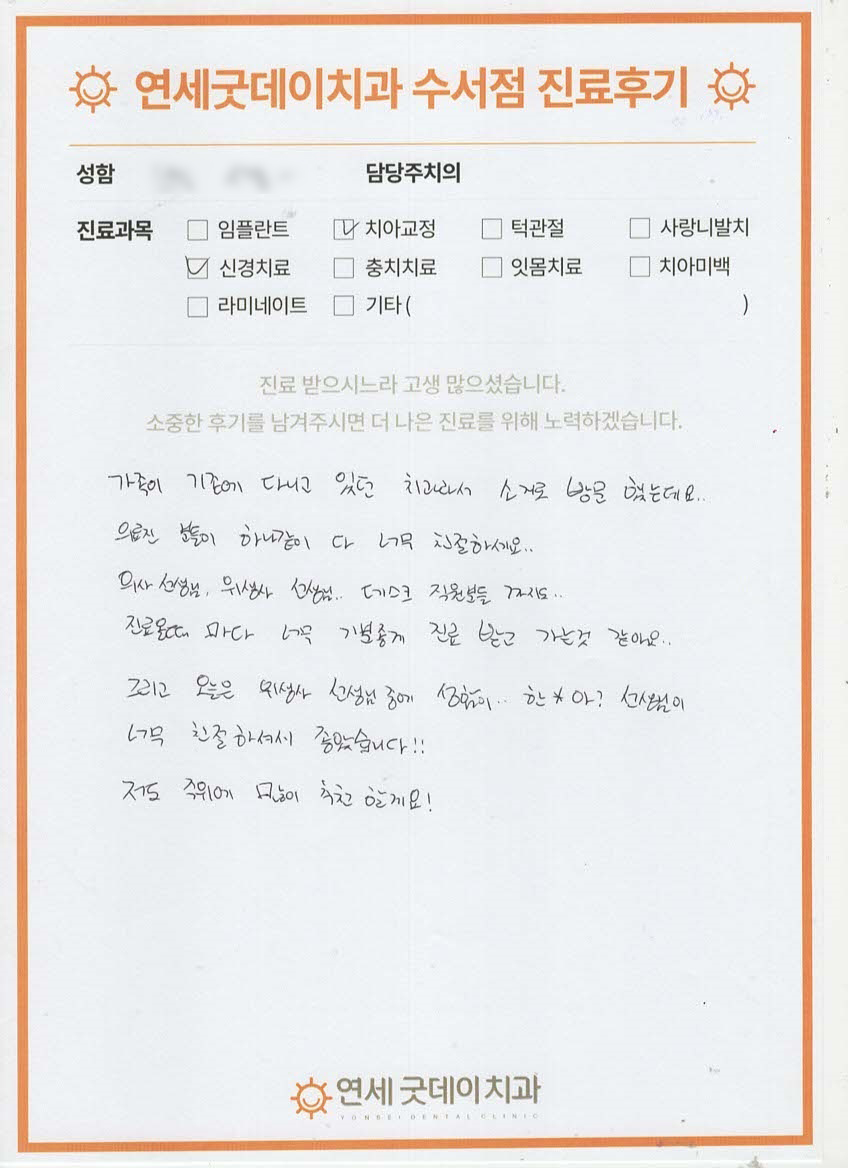 연세굿데이치과 수서점 진료후기
성함 담당주치의
진료과목 임플란트 치아교정 턱관절 사랑니발치
신경치료 충치치료 잇몸치료 치아미백
라미네이트 기타( )
진료 받으시느라 고생 많으셨습니다.
소중한 후기를 남겨주시면 더 나은 진료를 위해 노력하겠습니다.
가족이 기존에 다니고 있던 치과라서 소개로 방문 했는데요..
의료진 분들이 하나같이 다 너무 친절하세요..
의사 선생님, 위생사 선생님.. 데스크 직원분들 까지도..
진료올때 마다 너무 기분좋게 진료 받고 가는것 같아요..
그리고 오늘은 위생사 선생님 중에 성함이.. 한*아? 선생님이
너무 친절하셔서 좋았습니다!!
저도 주위에 많이 추천 할게요!
연세굿데이치과
YONSEI DENTAL CLINIC